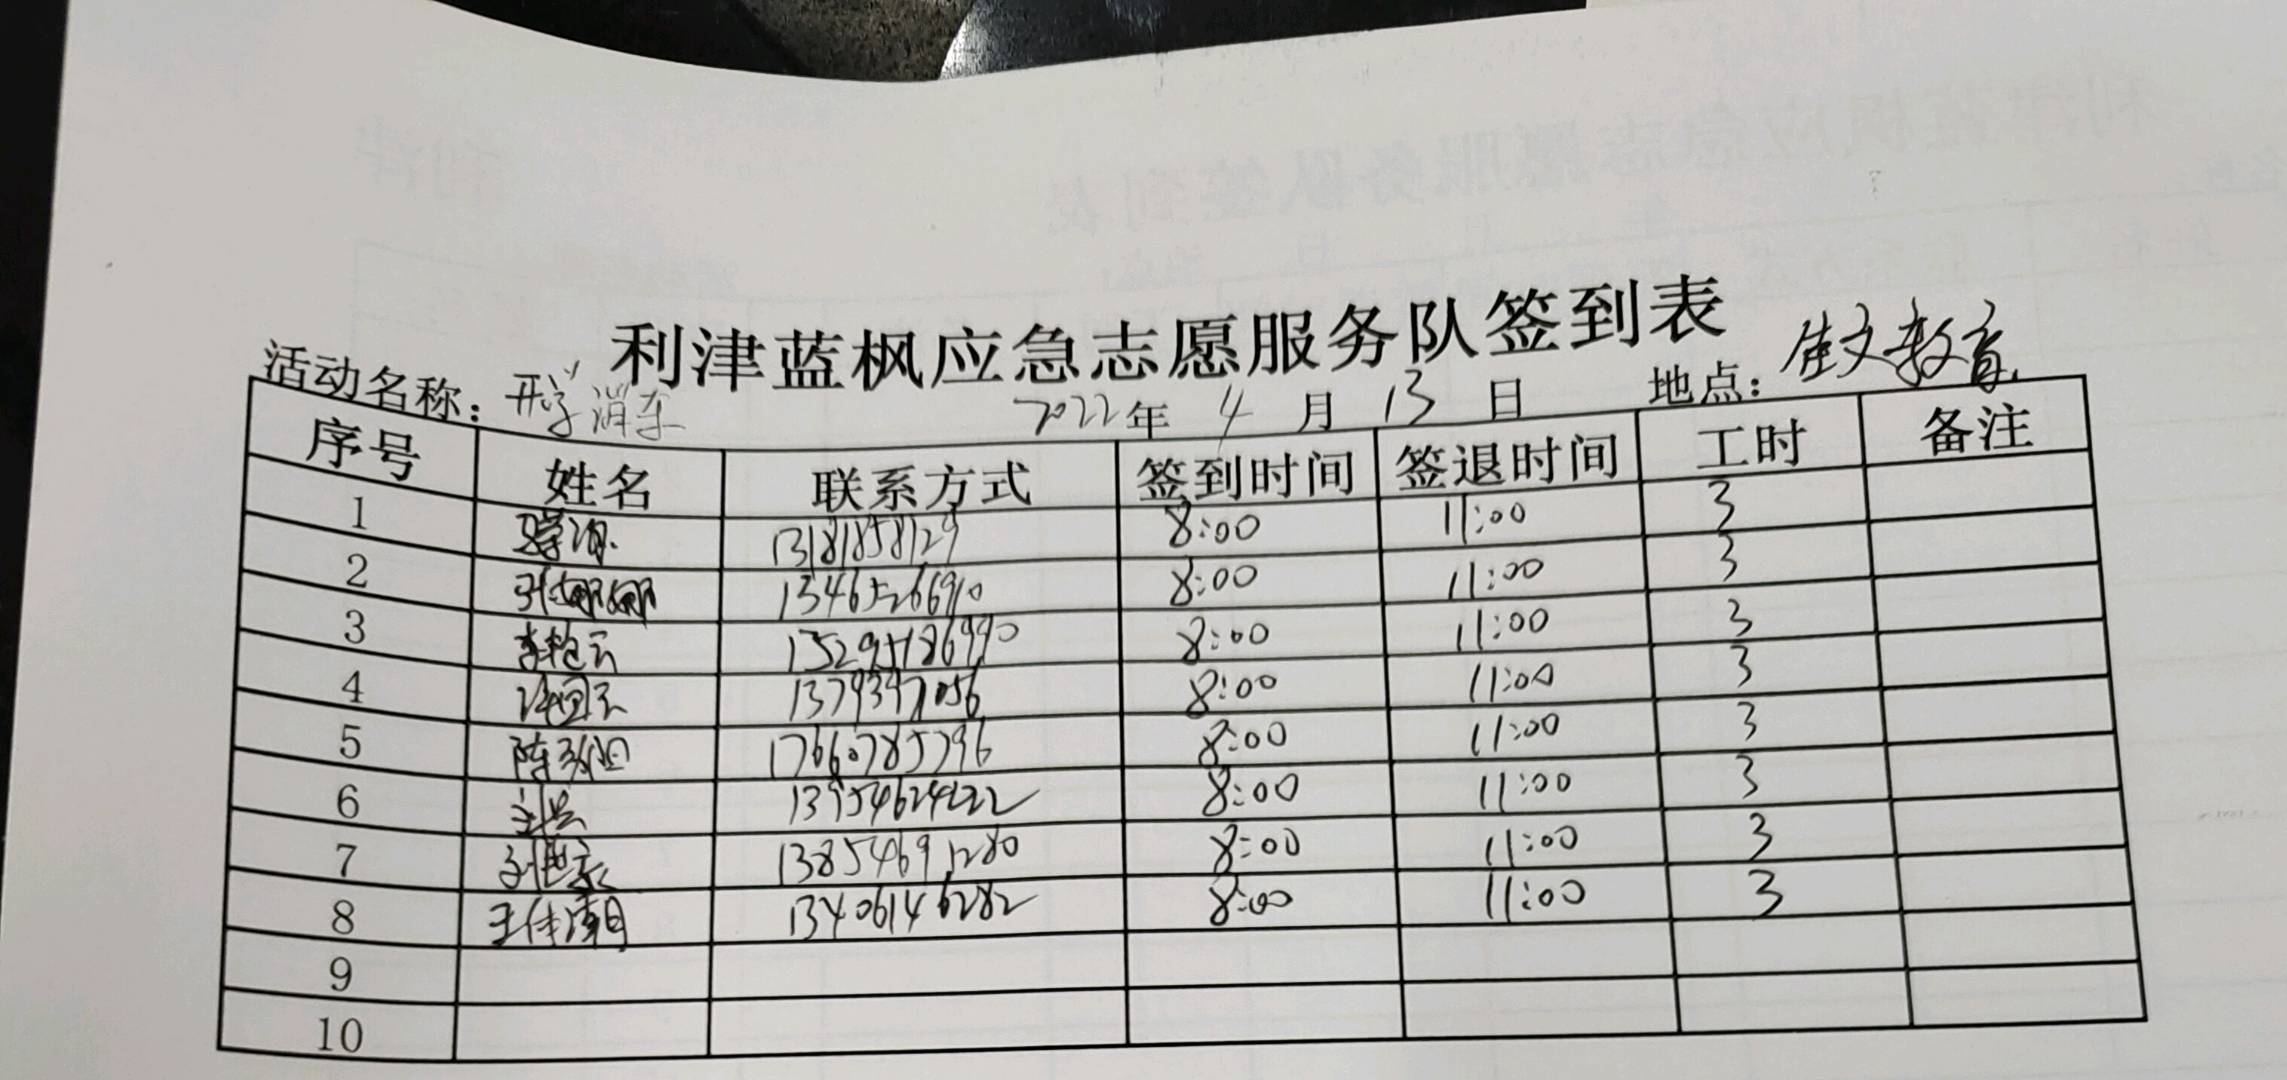 利津蓝枫应急志愿服务队签到表
活动名称： 开学消杀 2022年 4 月 13 日 地点： 佳文教育
序号 姓名 联系方式 签到时间 签退时间 工时 备注
1 13181858129 8:00 11:00 3
2 张娜娜 13465266910 8:00 11:00 3
3 李艳云 8:00 11:00 3
4 8:00 11:00 3
5 17660785796 8:00 11:00 3
6 13954624222 8:00 11:00 3
7 13854691280 8:00 11:00 3
8 13406146282 8:00 11:00 3
9
10